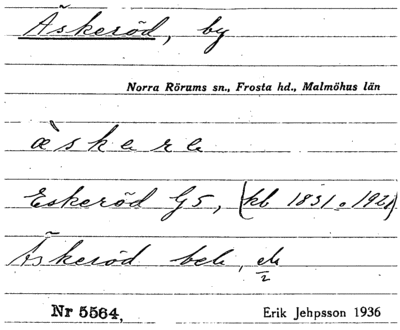 Äskeröd, by
Norra Rörums sn., Frosta hd., Malmöhus län
Eskeröd G5, (kb 1831 o 1921)
Äskeröd beb,
Nr 5564, Erik Jehpsson 1936